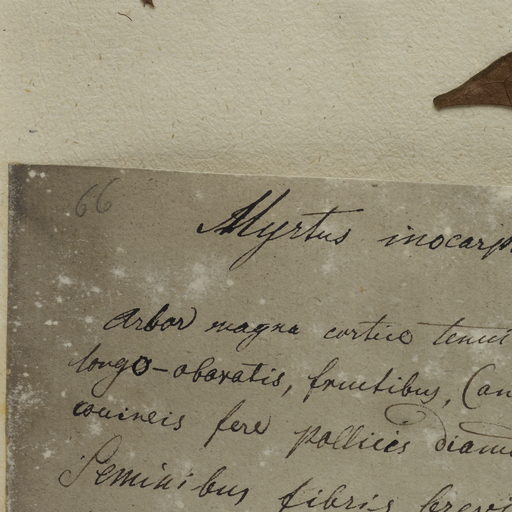 66
Myrtus inocarp
Arbor magna cortice tenui
longo-obovatis, fructibus, (an
fere pollicis diam
Seminibus fibris brevi